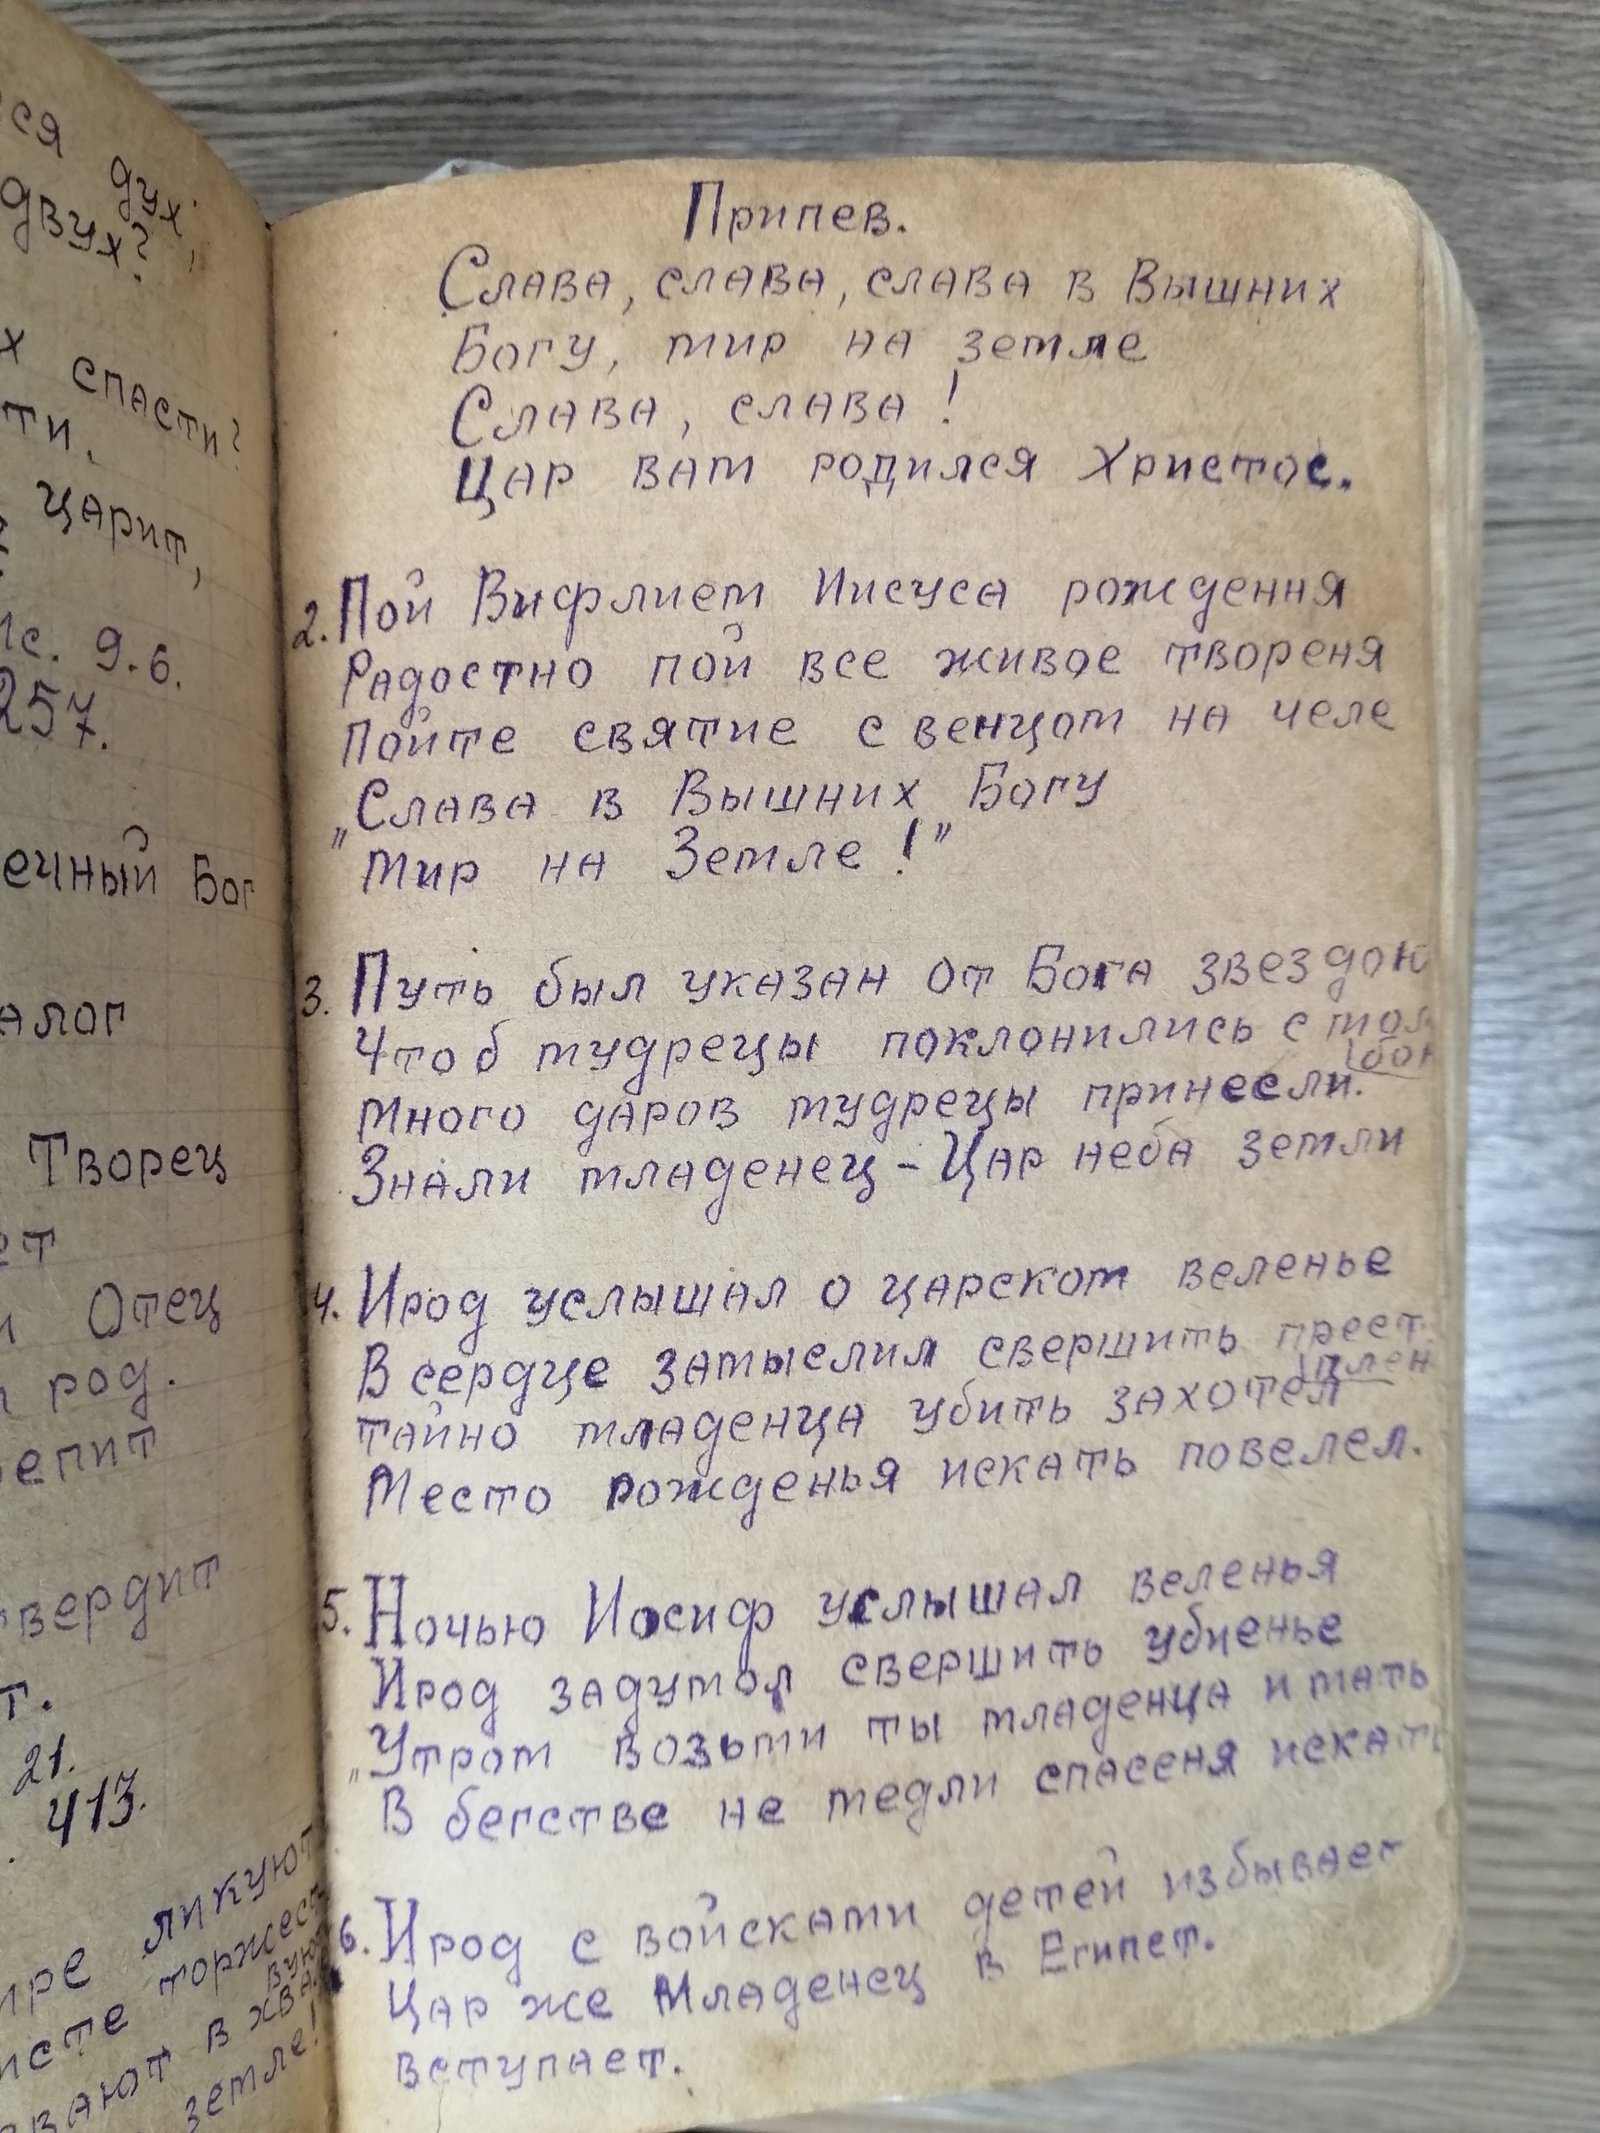 ся дух,
двух?
х спасти?
ти.
царит,
Ис. 9.6.
257.
ечный Бог
алог
Творец
ет
и Отец
род.
епит
твердит
т.
21.
413.
ире ликуют
исте торжест
вуют
вают в хва
земле!
Припев.
Слава, слава, слава в Вышних
Богу, мир на земле
Слава, слава!
Цар вам родился Христос.
2. Пой Вифлием Иисуса рождення
Радостно пой все живое твореня
Пойте святие с венцом на челе
„Слава в Вышних Богу
Мир на Земле!"
3. Путь был указан от Бога звездою
Чтоб мудрецы поклонились с моль
бою
Много даров мудрецы принесли.
Знали младенец - Цар неба земли
4. Ирод услышал о царском веленье
В сердце замыслил свершить прест
uплен
тайно младенца убить захотел
Место рожденья искать повелел.
5. Ночью Иосиф услышал веленья
Ирод задумал свершить убиенье
„Утром возьми ты младенца и мать
В бегстве не медли спасеня искать
6. Ирод с войсками детей избывает
Цар же Младенец в Египет.
вступает.